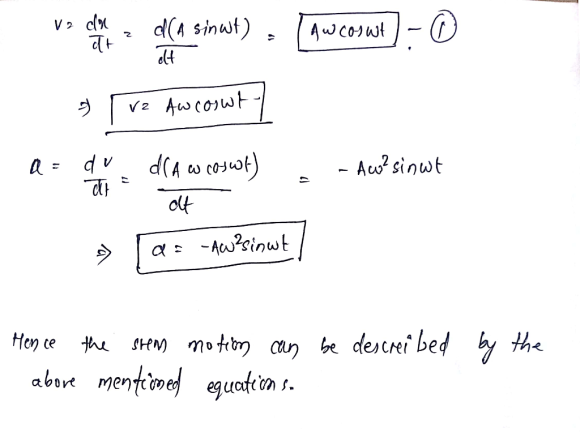 v = dx/dt = d(A sinωt)/dt = Aω cosωt - ①
⇒ v = Aω cosωt -
a = dv/dt = d(A ω cosωt)/dt = - Aω² sinωt
⇒ a = -Aω² sinωt
Hence the SHM motion can be described by the
above mentioned equations.